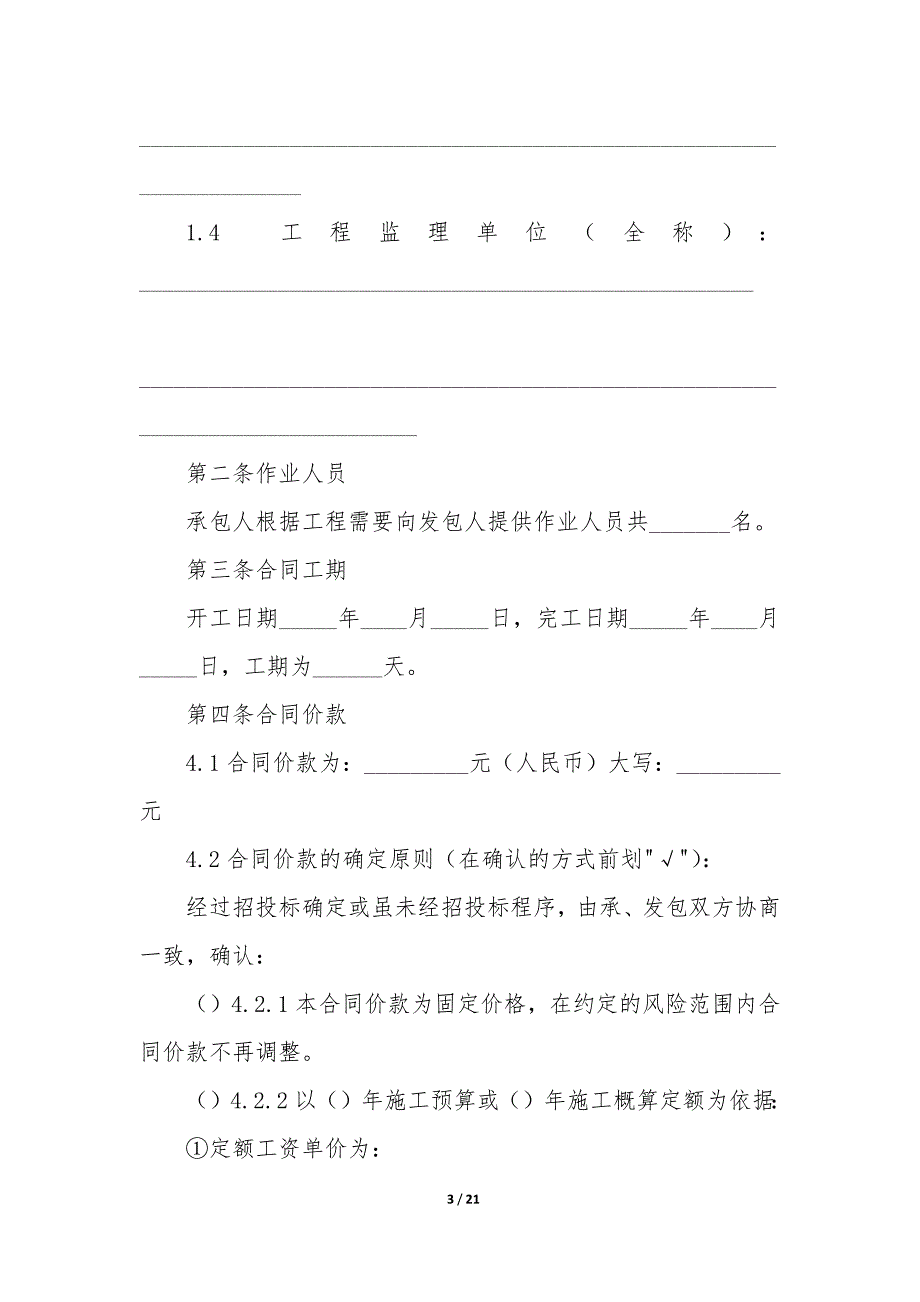 _______________________________________________________
______________
1.4 工程监理单位（全称）：
_____________________________________________________
_______________________________________________________
________________________
第二条作业人员
承包人根据工程需要向发包人提供作业人员共_______名。
第三条合同工期
开工日期_____年____月_____日，完工日期_____年____月
_____日，工期为______天。
第四条合同价款
4.1合同价款为：_________元（人民币）大写：_________
元
4.2合同价款的确定原则（在确认的方式前划"√"）：
经过招投标确定或虽未经招投标程序，由承、发包双方协商
一致，确认：
（）4.2.1本合同价款为固定价格，在约定的风险范围内合
同价款不再调整。
（）4.2.2以（）年施工预算或（）年施工概算定额为依据：
①定额工资单价为：
3 / 21